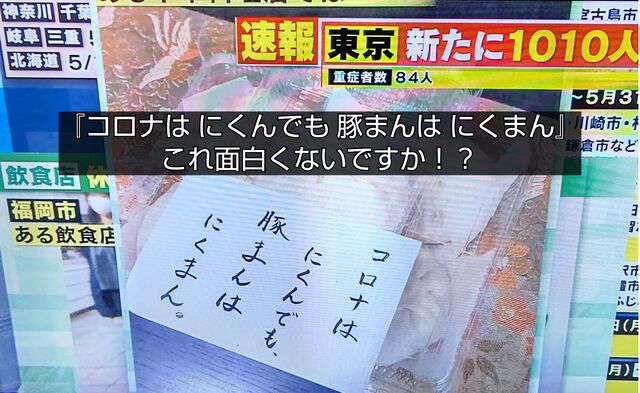 神奈川 千葉
岐阜 三重
北海道 5/
速報 東京 新たに1010人
重症者数 84人
宮古島市
~5月31
川崎市・
鎌倉市など
『コロナは にくんでも 豚まんは にくまん』
これ面白くないですか！？
飲食店 休
福岡市
ある飲食店
コロナは
にくんでも、
豚まんは
にくまん。